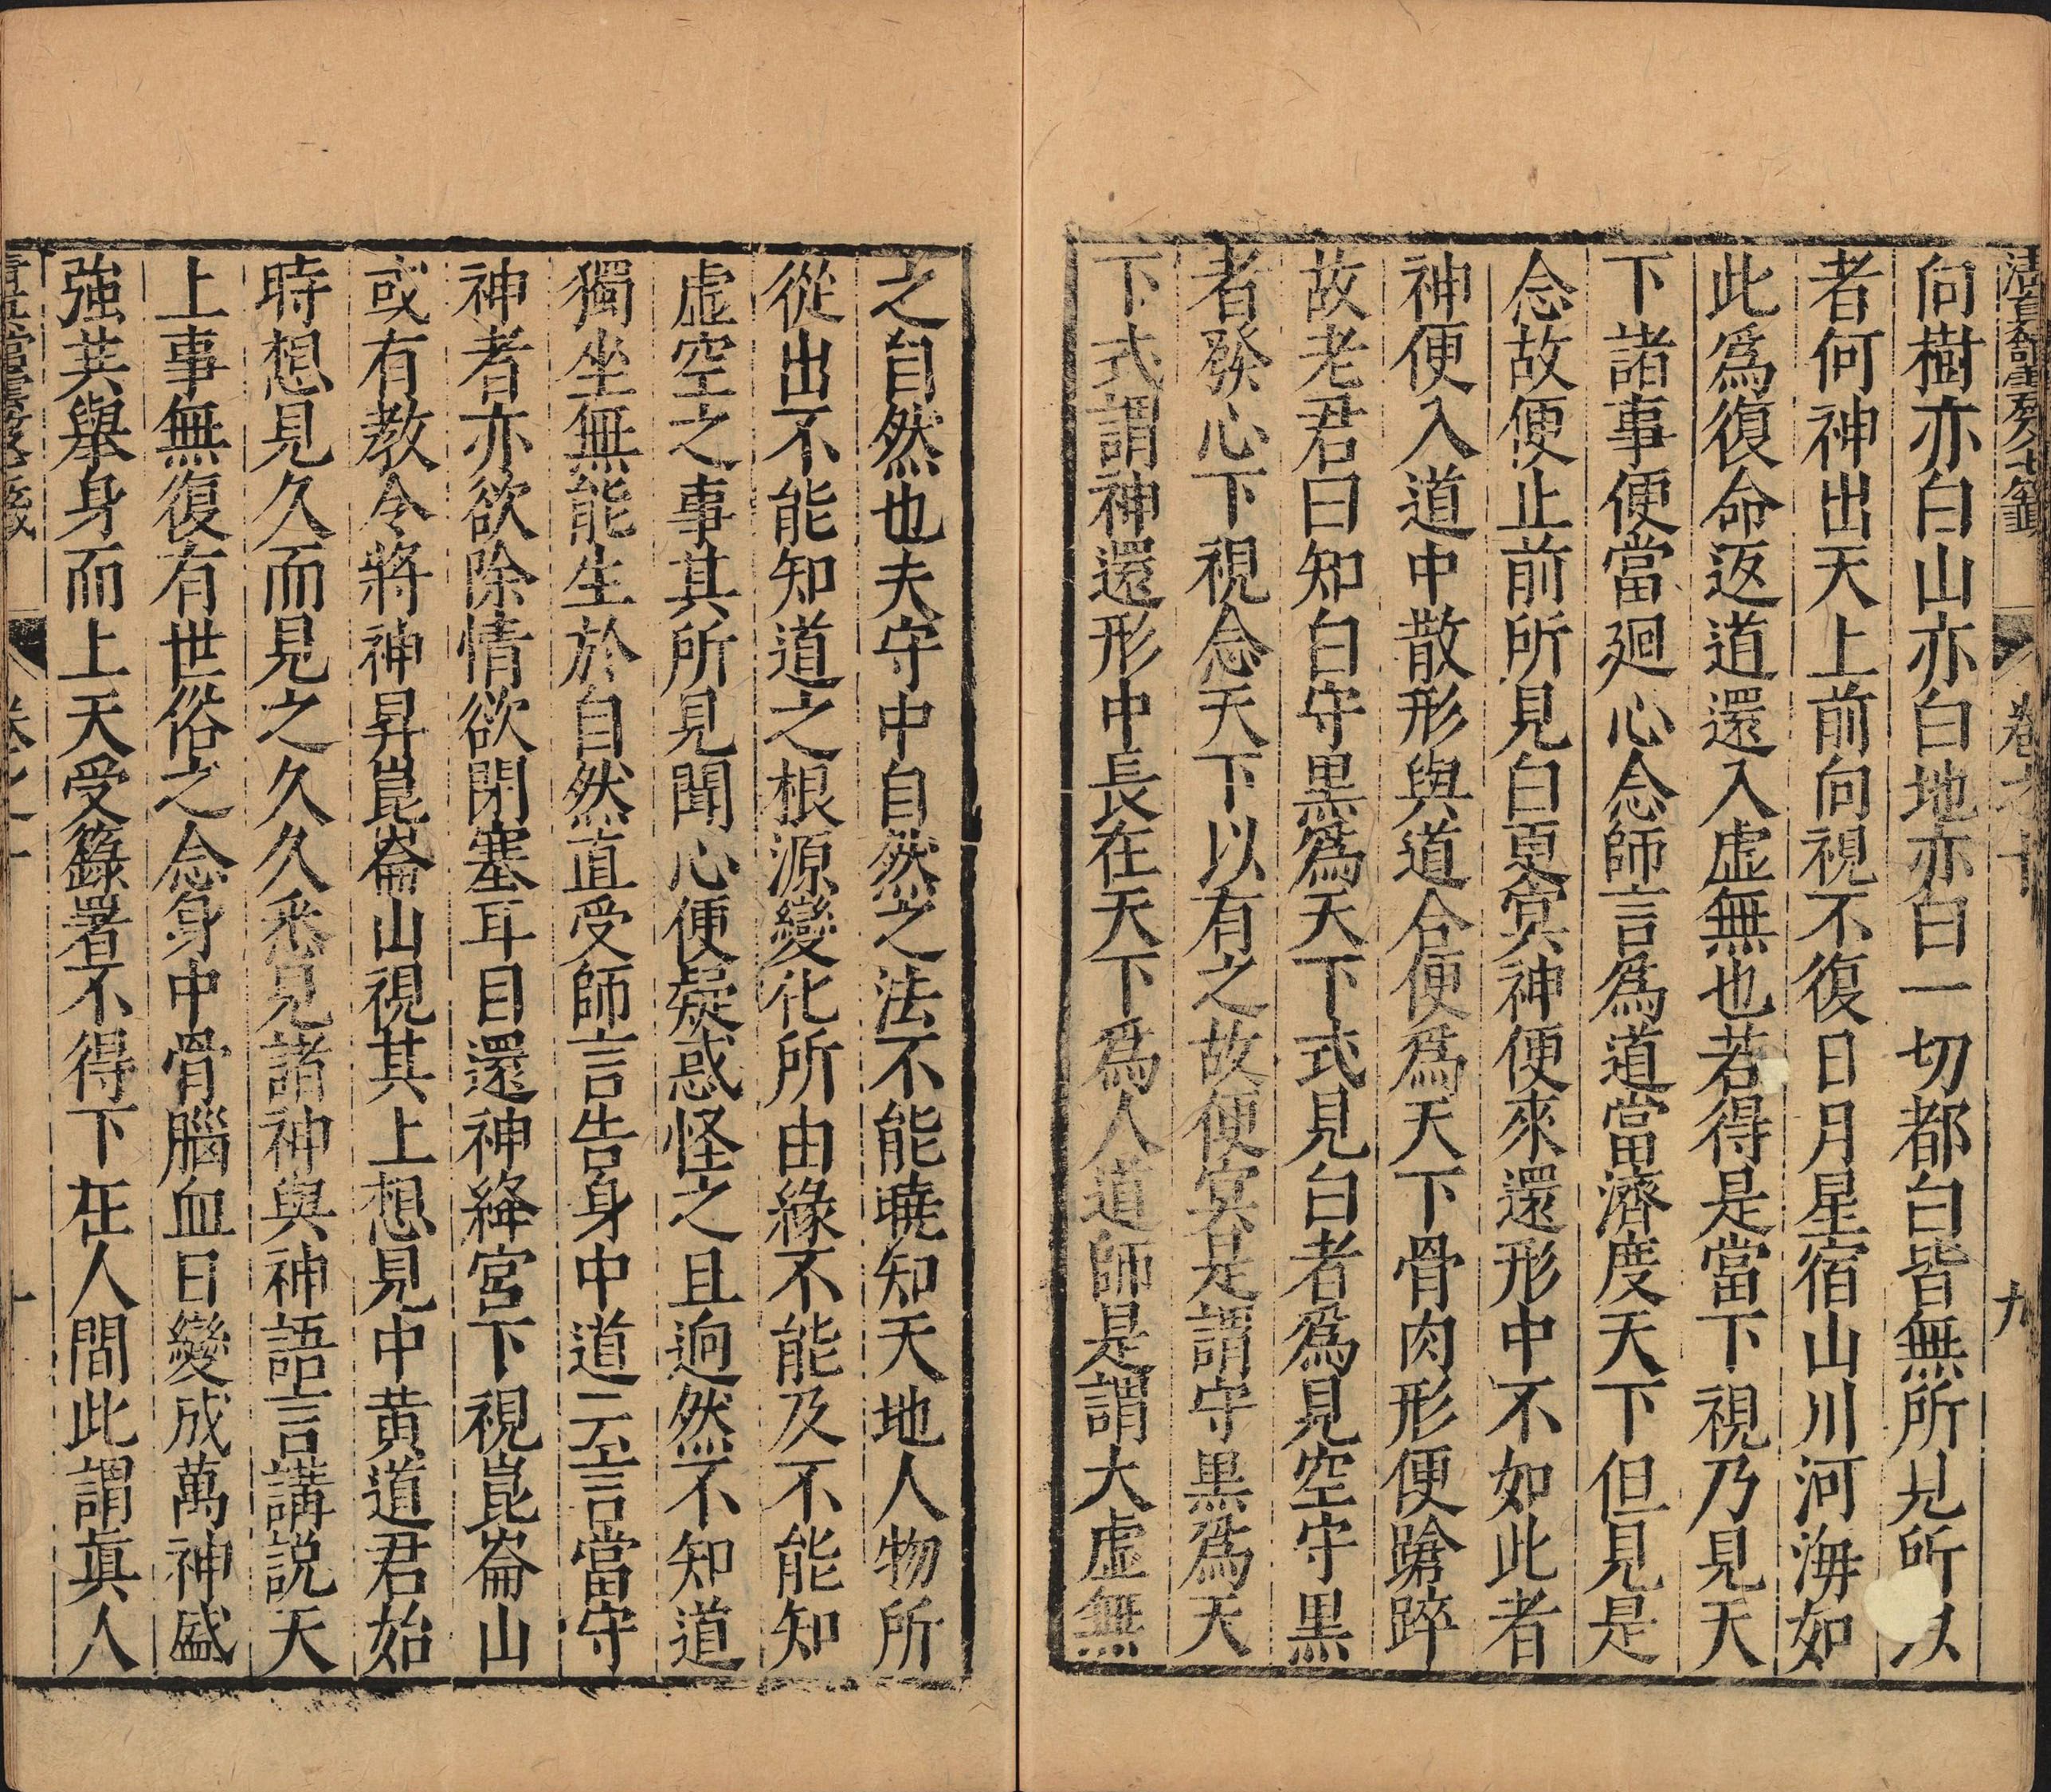 向樹亦白山亦白地亦白一切都白皆無所見所以
者何神出天上前向視不復日月星宿山川河海如
此爲復命返道還入虛無也若得是當下視乃見天
下諸事便當廻心念師言爲道當濟度天下但見是
念故便止前所見白更㝠神便來還形中不如此者
神便入道中散形與道合便爲天下骨肉形便蹌踤
故老君曰知白守黒爲天下式見白者爲見空守黒
者發心下視念天下以有之故便㝠是謂守黒爲天
下式謂神還形中長在天下爲人道師是謂大虛無
之自然也夫守中自然之法不能曉知天地人物所
從出不能知道之根源變化所由緣不能及不能知
虛空之事其所見聞心便疑惑怪之且逈然不知道
獨坐無能生於自然直受師言告身中道云言當守
神者亦欲除情欲閉塞耳目還神絳宮下視崑崙山
或有教令將神昇崑崙山視其上想見中黄道君始
時想見久而見之久久悉見諸神與神語言講説天
上事無復有世俗之念身中骨腦血日變成萬神盛
強共舉身而上天受籙署不得下在人間此謂真人